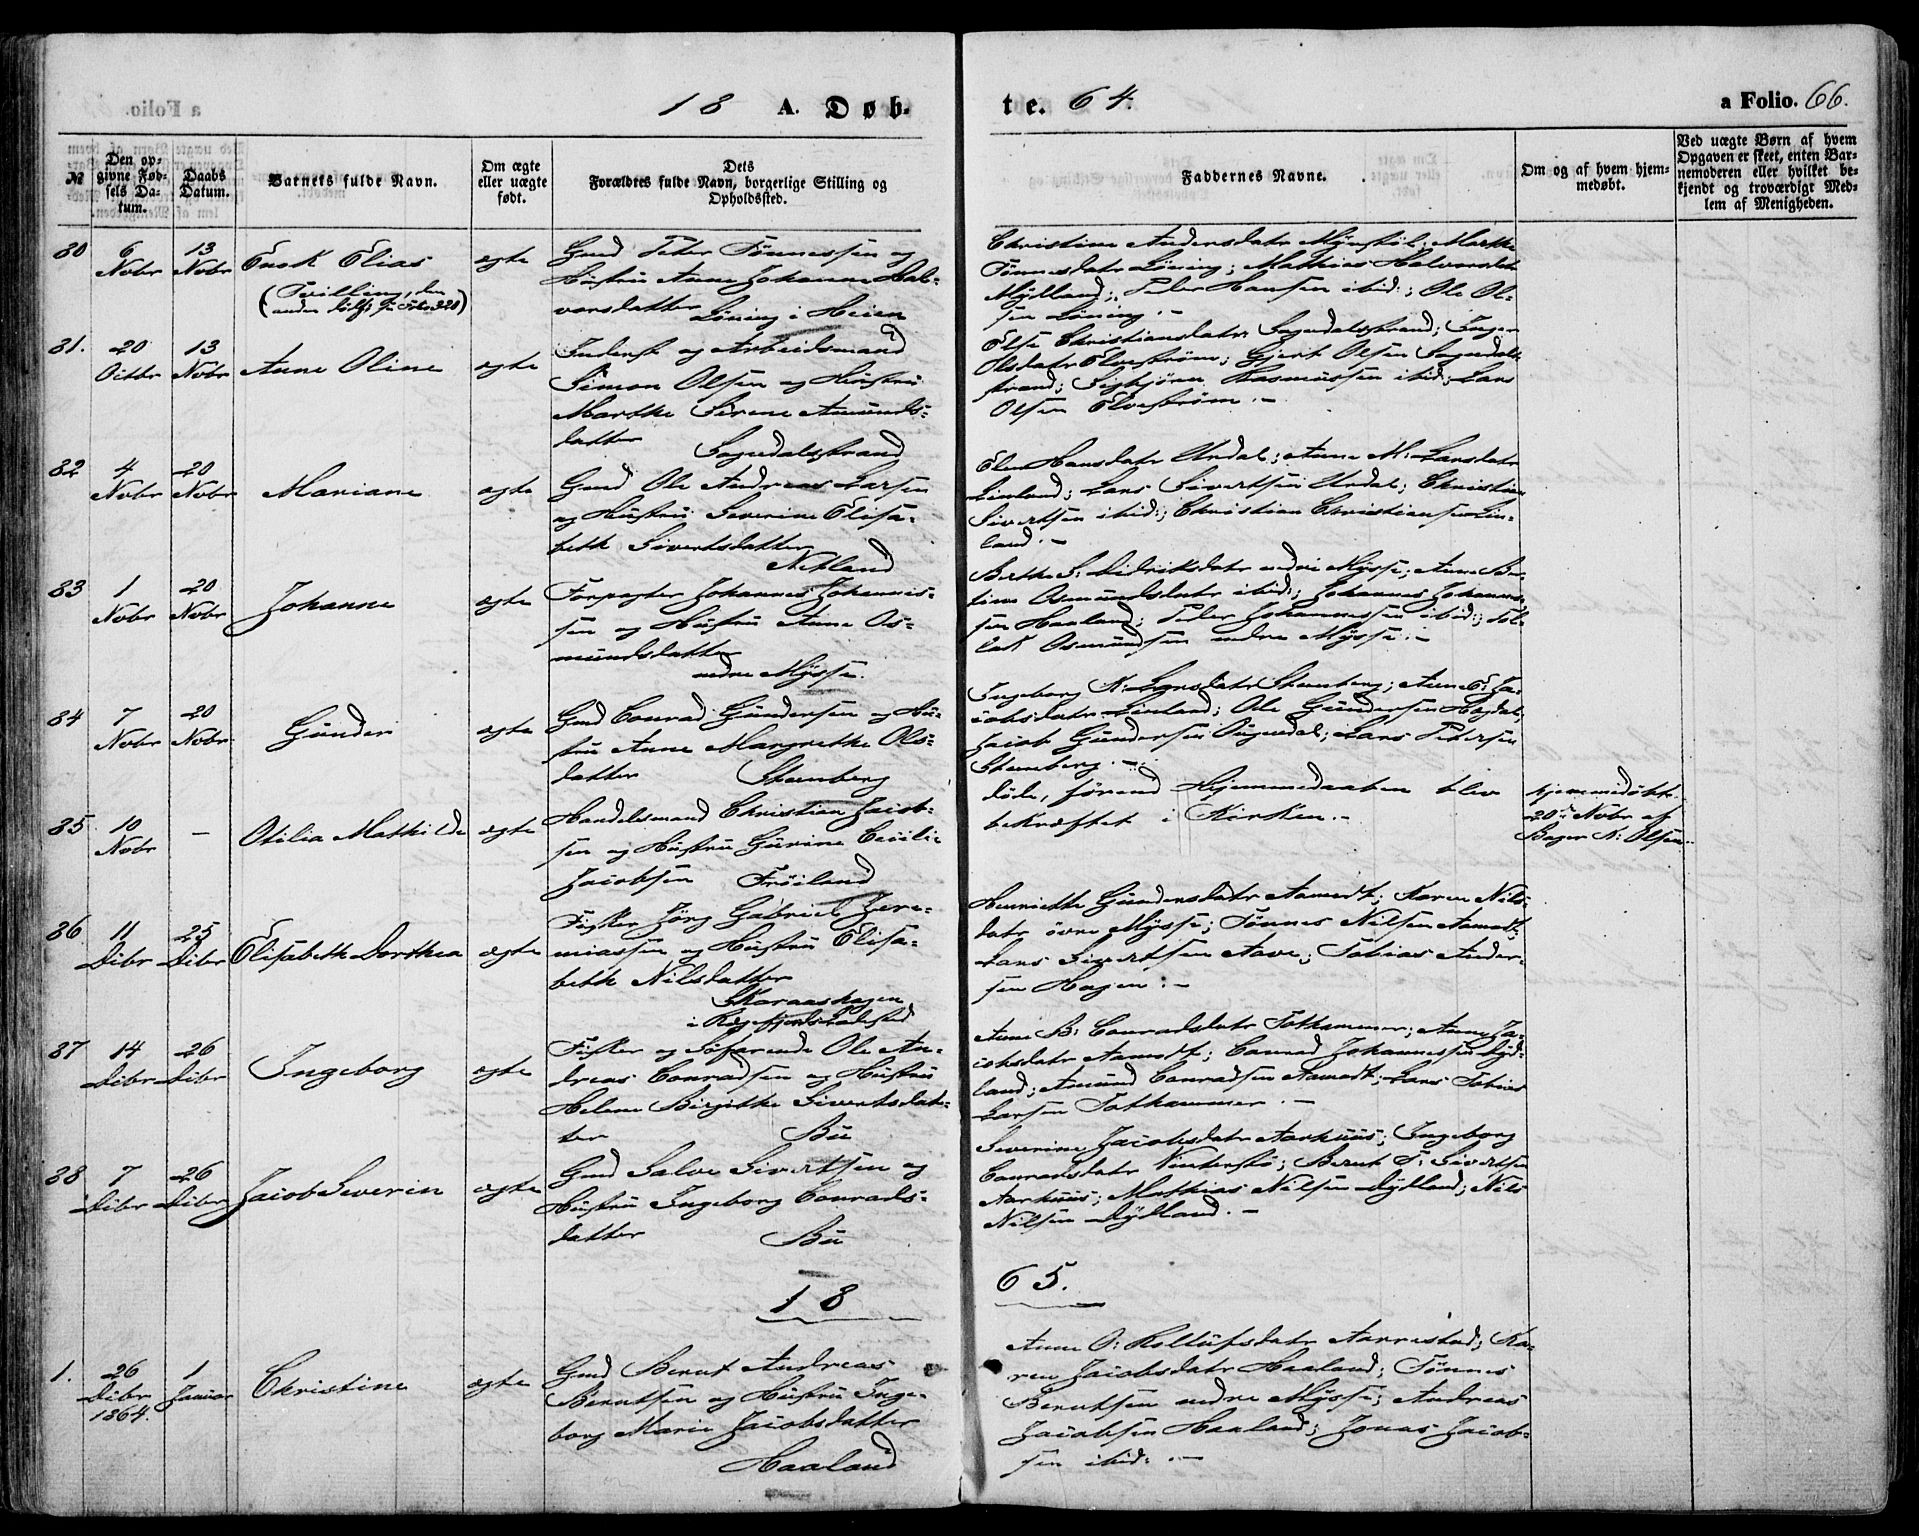 18 A. Døb-
te. 64.
a Folio. 66.
№
Den op-
givne Fød-
sels Da-
tum.
Daabs
Datum.
Barnets fulde Navn.
Om ægte
eller uægte
født.
Dets
Forældres fulde Navn, borgerlige Stilling og
Opholdssted.
Faddernes Navne.
Om og af hvem hjem-
medøbt.
Ved uægte Børn af hvem
Opgaven er skeet, enten Bar-
nemoderen eller hvilket be-
kjendt og troværdigt Med-
lem af Menigheden.
80 6 Novbr 13 Novbr Enok Elias ægte
(Tvilling, den
anden
Gmd Peder Tønnessen og
Hustru Anne Johanne Hal-
vorsdatter
Løning i Heien
Christine Andersdatr Marthe
Tønnesdatr Løning; Mathias Halvorsen
Mydland; Peder Hansen ibid:; Ole Ol-
sen Løning.-
81. 20 Octbr 13 Novbr Anne Oline ægte
Inderst og Arbeidsmand
Simon Olsen og Hustru
Marthe Serene Amunds-
datter
Sogndalsstrand
Else Christiansdatr Sogndalsstrand; Inger
Olsdatr Elvestrøm; Gjert Olsen Sogndals-
strand; Sigbjørn Rasmussen ibid; Lars
Olsen Elvestrøm.-
82 4 Novbr 20 Novbr Mariane ægte
Gmd Ole Andreas Larsen
og Hustru Severine Elisa-
beth Sivertsdatter
Netland
Elen Hansdatr Urdal; Anne M: Larsdatr
Linland; Lars Sivertsen Urdal; Christian
Sivertsen ibid:; Christian Christiansen Lin-
land.-
83 1 Novbr 20 Novbr Johanne ægte
Forpagter Johannes Johannes-
sen og Hustru Anne Os-
mundsdatter
nedre Mysse.
Berthe S: Didriksdatr nedre Mysse; Anne Be-
tine Osmundsdatr ibid:; Johannes Johannes-
sen Haaland; Peder Johannessen ibid:; Tol-
lak Osmundsen nedre Mysse.-
84 7 Novbr 20 Novbr Gunder ægte
Gmd Conrad Gundersen og Hu-
stru Anne Margrethe Ols-
datter
Steenberg
Ingeborg K: Larsdatr Steenberg; Anne E: Ja-
cobsdatr Linland; Ole Gundersen
Jacob Gundersen; Lars Petersen
Steenberg.-
85 10 Novbr - Otilia Mathilde ægte
Handelsmand Christian Jacob-
sen og Hustru Gurine Cecili-
Jacobsen Frøiland
døde, førend Hjemmedaaben blev
bekræftet i Kirken.-
hjemmedøbt
20de Novbr af
Bager N: Olsen.
86 11 Dcbr 25 Dcbr Elisabeth Dorthea ægte
Fisker Jörg Gabriel Jere-
miassen og Hustru Elisa-
beth Nilsdatter
Skaraashagen
i Rægefjords Ladested
Henriette Gundersdatr Aamodt; Karen Nils-
datr øvre Mysse; Tønnes Nilsen Aamodt;
Lars Sivertsen Aave; Tobias Ander-
sen Hagen.-
87 14 Dcbr 26 Dcbr Ingeborg ægte
Fisker og Søfarende Ole An-
dreas Conradsen og Hustru
Helene Birgitte Sivertsdat-
ter Bu
Anne B: Conradsdatr Tothammer; Anne Ja-
cobsdatr Aamodt; Conrad Johannessen Dyd-
land; Amund Conradsen Aamodt; Lars Tobias
Larsen Tothammer.-
88 7 Dcbr 26 Dcbr Jacob Severin ægte
Gmd Salve Sivertsen og
Hustru Ingeborg Conrads-
datter Bu
Severine Jacobsdatr Aarhuus; Ingeborg
Conradsdatr Vinterstø; Bernt T: Sivertsen
Aarhuus; Mathias Nilsen Dydland; Nils
Nilsen Dydland.-
18
65.
1. 26 Dcbr 1864. 1 Januar Christine ægte
Gmd Bernt Andreas
Berntsen og Hustru Inge-
borg Marie Jacobsdatter
Haaland
Anne O: Rollufsdatr Aarrestad; Ka-
ren Jacobsdatr Haaland; Tønnes
Berntsen nedre Mysse; Andreas
Jacobsen Haaland; Jonas Jacob-
sen ibid:.-